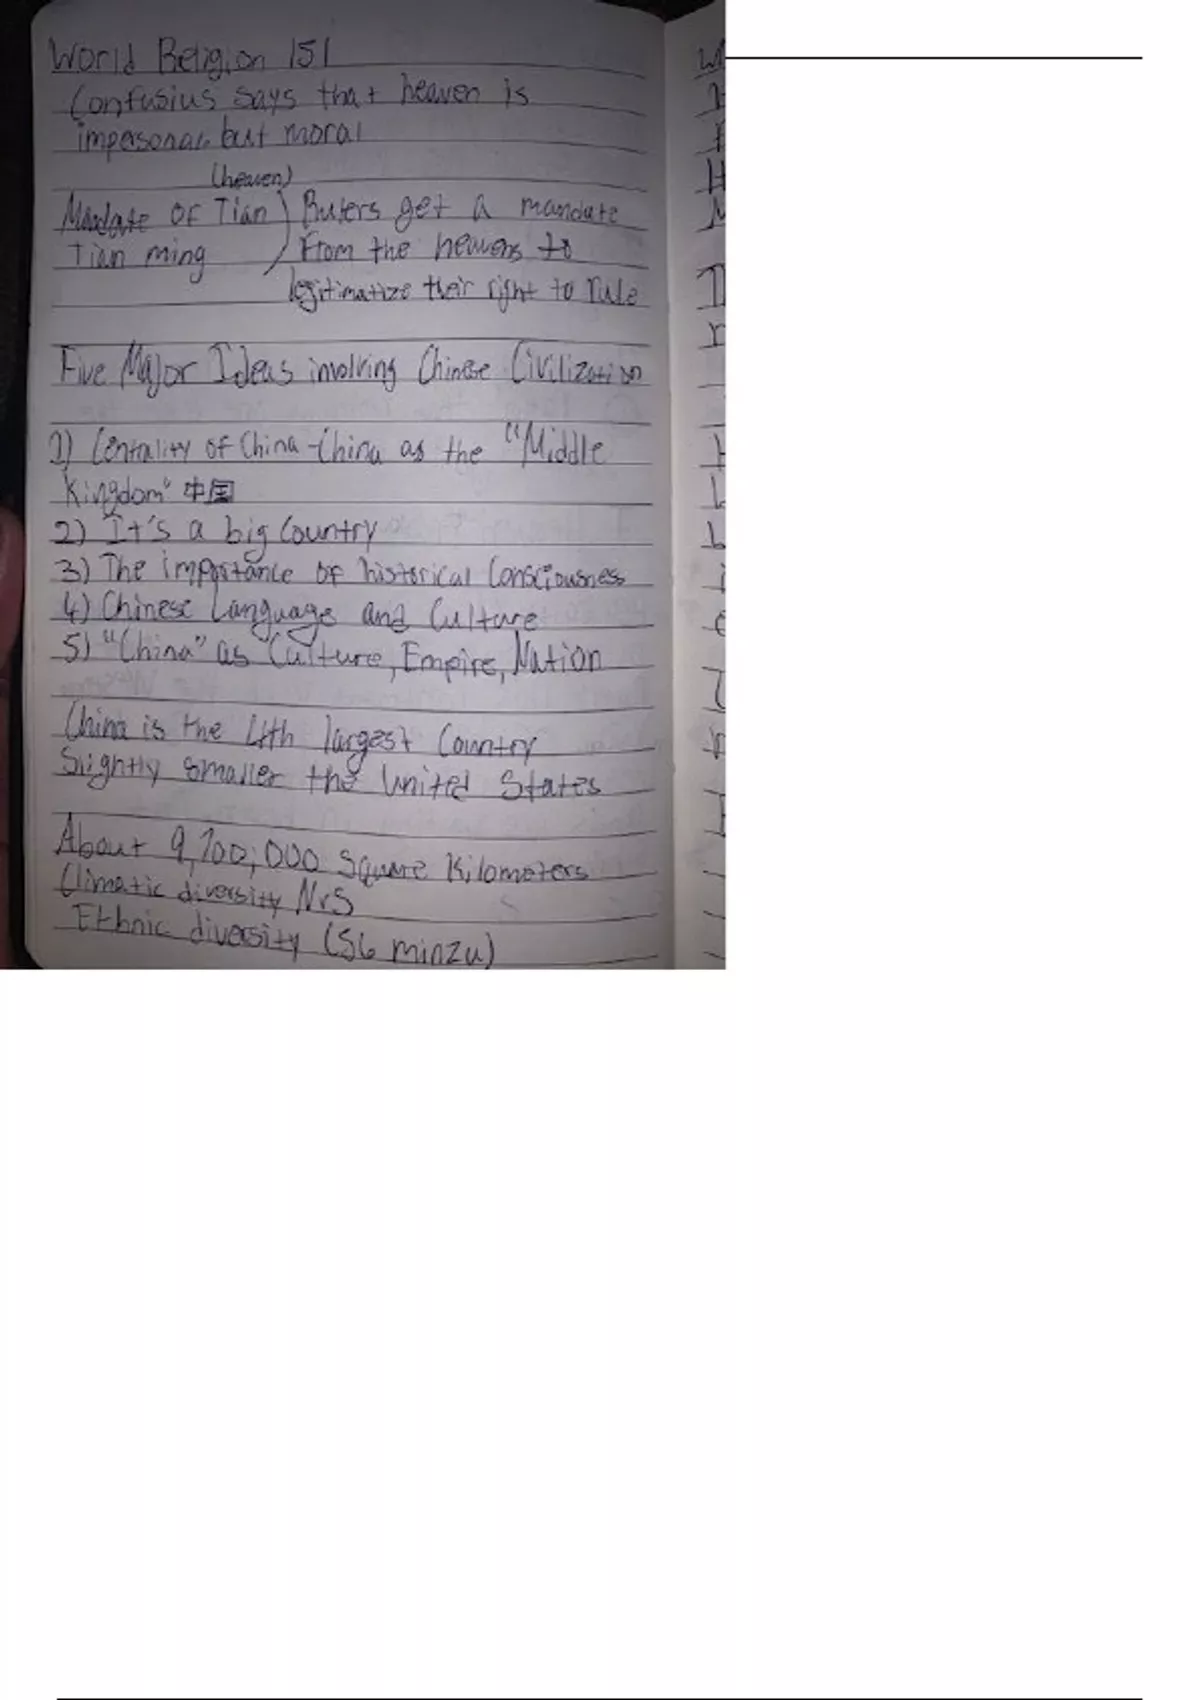 World Religion 151
Confusius says that heaven is
impersonal, but moral
(heaven)
Mandate OF Tian ) Rulers get a mandate
Tian ming / From the heavens to
legitimatize their right to rule
Five Major Ideas involving Chinese Civilization
1) Centrality of China - China as the "Middle
Kingdom" 中国
2) It's a big Country
3) The importance of historical Consciousness
4) Chinese Language and Culture
5) "China" as Culture, Empire, Nation
China is the 4th largest Country
Slightly smaller the United States
About 9,700,000 Square Kilometers
Climatic diversity NvS
Ethnic diversity (56 minzu)